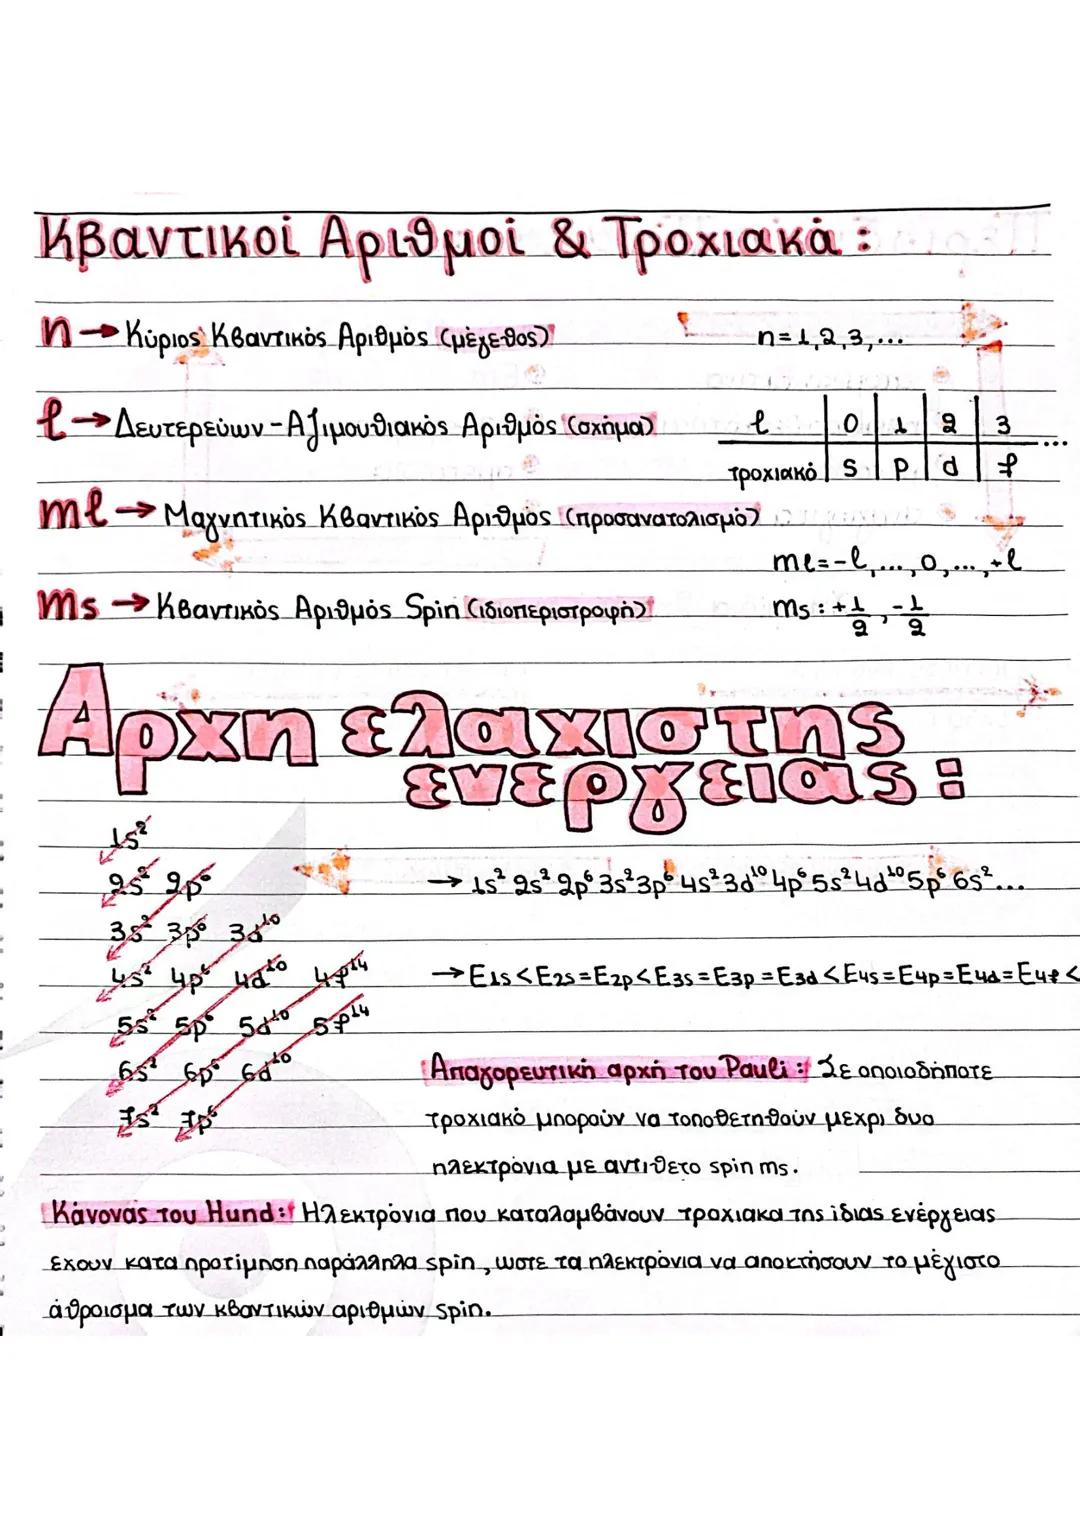 Κβαντικοί Αριθμοί & Τροχιακά:
n → Κύριος Κβαντικός Αριθμός (μέγεθος) n=1,2,3,...
l → Δευτερεύων-Αζιμουθιακός Αριθμός (σχήμα) l | 0 | 1 | 2 | 3 ...
τροχιακό | s | p | d | f
ml → Μαγνητικός Κβαντικός Αριθμός (προσανατολισμό)
ml=-l,...,0,...,+l
ms → Κβαντικός Αριθμός Spin (ιδιοπεριστροφή) ms: +1/2, -1/2
Αρχη ελαχιστης
ενεργειας:
1s²
2s² 2p⁶ → 1s² 2s² 2p⁶ 3s² 3p⁶ 4s² 3d¹⁰ 4p⁶ 5s² 4d¹⁰ 5p⁶ 6s²...
3s² 3p⁶ 3d¹⁰
4s² 4p⁶ 4d¹⁰ 4f¹⁴ → E1s<E2s=E2p<E3s=E3p=E3d<E4s=E4p=E4d=E4f<
5s² 5p⁶ 5d¹⁰ 5f¹⁴
6s² 6p⁶ 6d¹⁰ Απαγορευτική αρχή του Pauli: Σε οποιοδήποτε
7s² 7p⁶ τροχιακό μπορούν να τοποθετηθούν μέχρι δυο
ηλεκτρόνια με αντίθετο spin ms.
Κάνονας του Hund: Ηλεκτρόνια που καταλαμβάνουν τροχιακα της ίδιας ενέργειας
εχουν κατα προτίμηση παράλληλα spin, ωστε τα ηλεκτρόνια να αποκτήσουν το μέγιστο
άθροισμα των κβαντικών αριθμών spin.